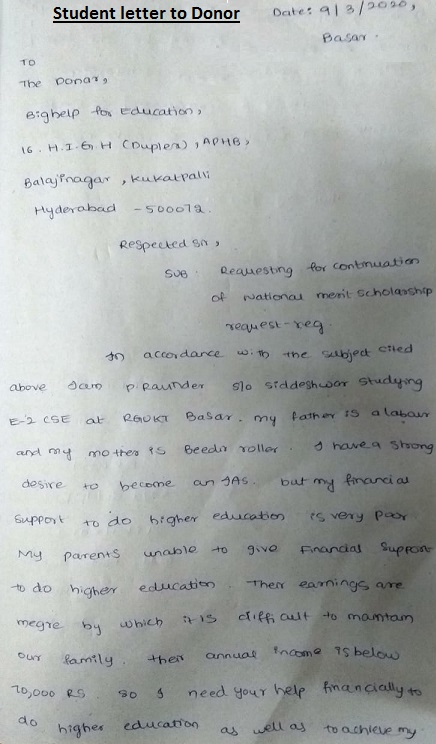 Student letter to Donor
Date: 9/3/2020,
Basar.
TO
The Donar,
Bighelp for Education,
16. H.I.G H (Duplex), APHB,
Balajinagar, Kukatpalli
Hyderabad - 500072.
Respected Sir,
SUB: Requesting for continuation
of National merit scholarship
request-reg.
In accordance with the subject cited
above I am P. Raunder S/o Siddeshwar studying
E-2 CSE at RGUKT Basar. my father is a labour
and my mother is Beedi roller. I have a strong
desire to become an IAS. but my financial
Support to do higher education is very poor
My parents unable to give Financial Support
to do higher education. Their earnings are
megre by which it is difficult to maintain
our family. their annual income is below
70,000 RS. so I need your help financially to
do higher education as well as to achieve my